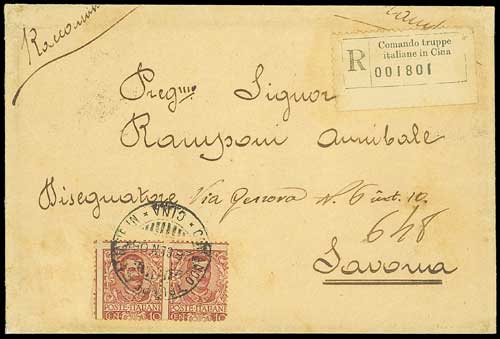 Raccoman
R
Comando truppe
italiane in Cina
001801
Preg.mo Signor
Ramponi Annibale
Disegnatore Via Genova N. 6 int. 10.
648
Savona
CINA
POSTE·ITALIANE POSTE·ITALIANE
CEN 10 CEN 10